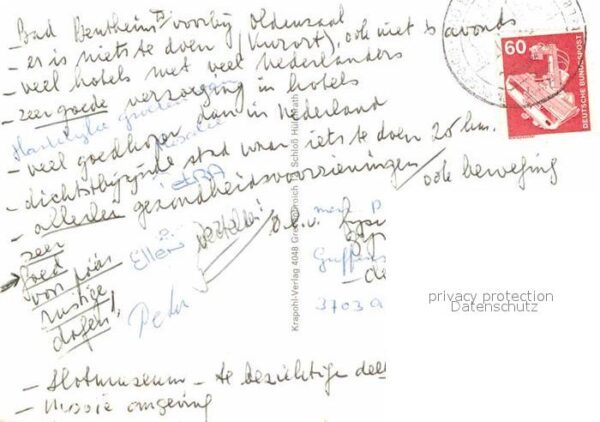 - Bad Bentheim voorbij Oldenzaal
- er is niets te doen (Kurort), ook niet 's avonds
- veel hotels met veel Nederlanders
- zeer goede verzorging in hotels
Hartelijke groeten
- veel goedkoper dan in Nederland
- dichtstbijzijnde stad waar iets te doen 20 km.
- allerlei gezondheidsvoorzieningen / ook beweging
zeer
goed
voor paar
rustige
dagen!
Ellen
Peter
bestellen!
o.k.v.
3703 a
- Slotmuseum - te bezichtigen
- Mooie omgeving
Krapohl-Verlag 4048 Grevenbroich Schloß Hülchrath
60
DEUTSCHE BUNDESPOST
privacy protection
Datenschutz